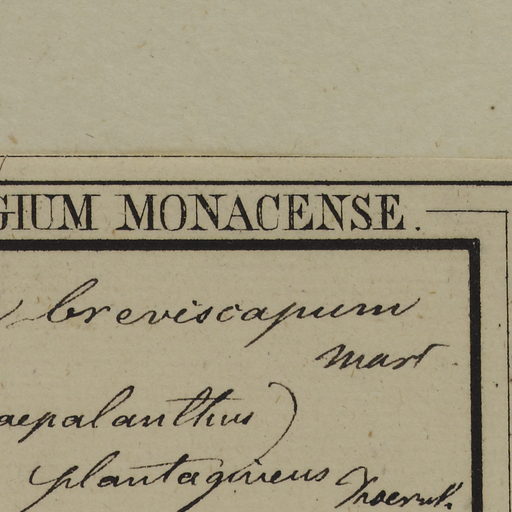 GIUM MONACENSE.
breviscapum
Mart
aepalanthus)
plantagineus Koernik.